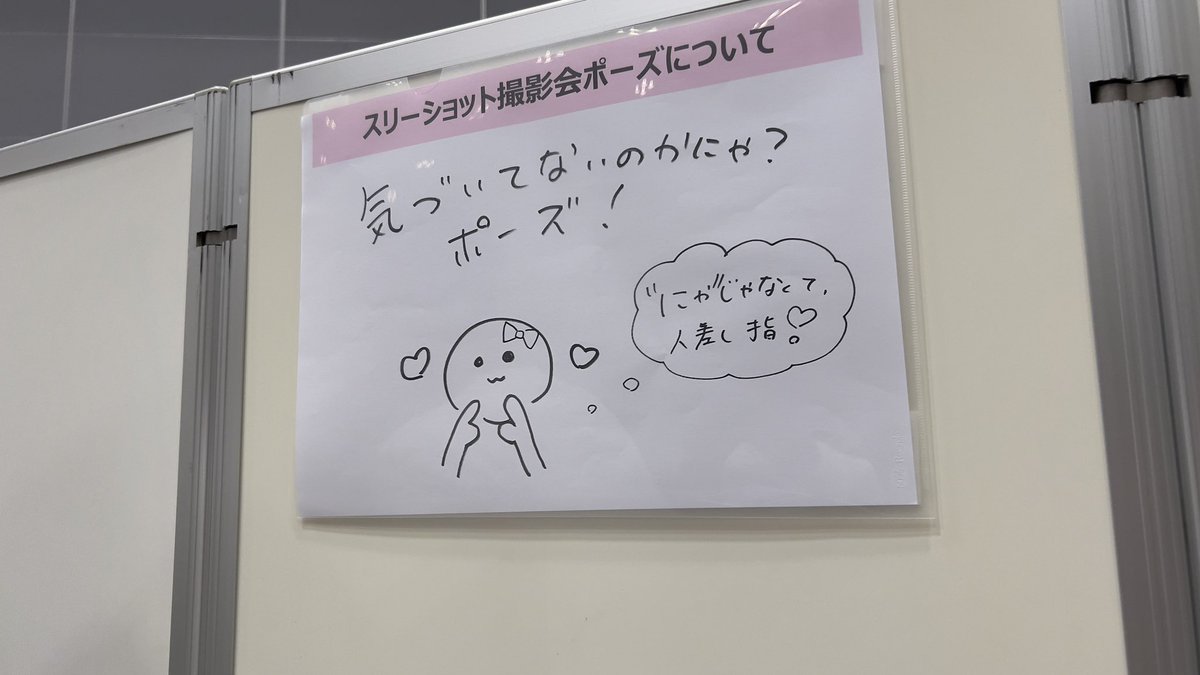 スリーショット撮影会ポーズについて
気づいてないのかにゃ?
ポーズ!
"にゃ"じゃなくて、
人差し指♡